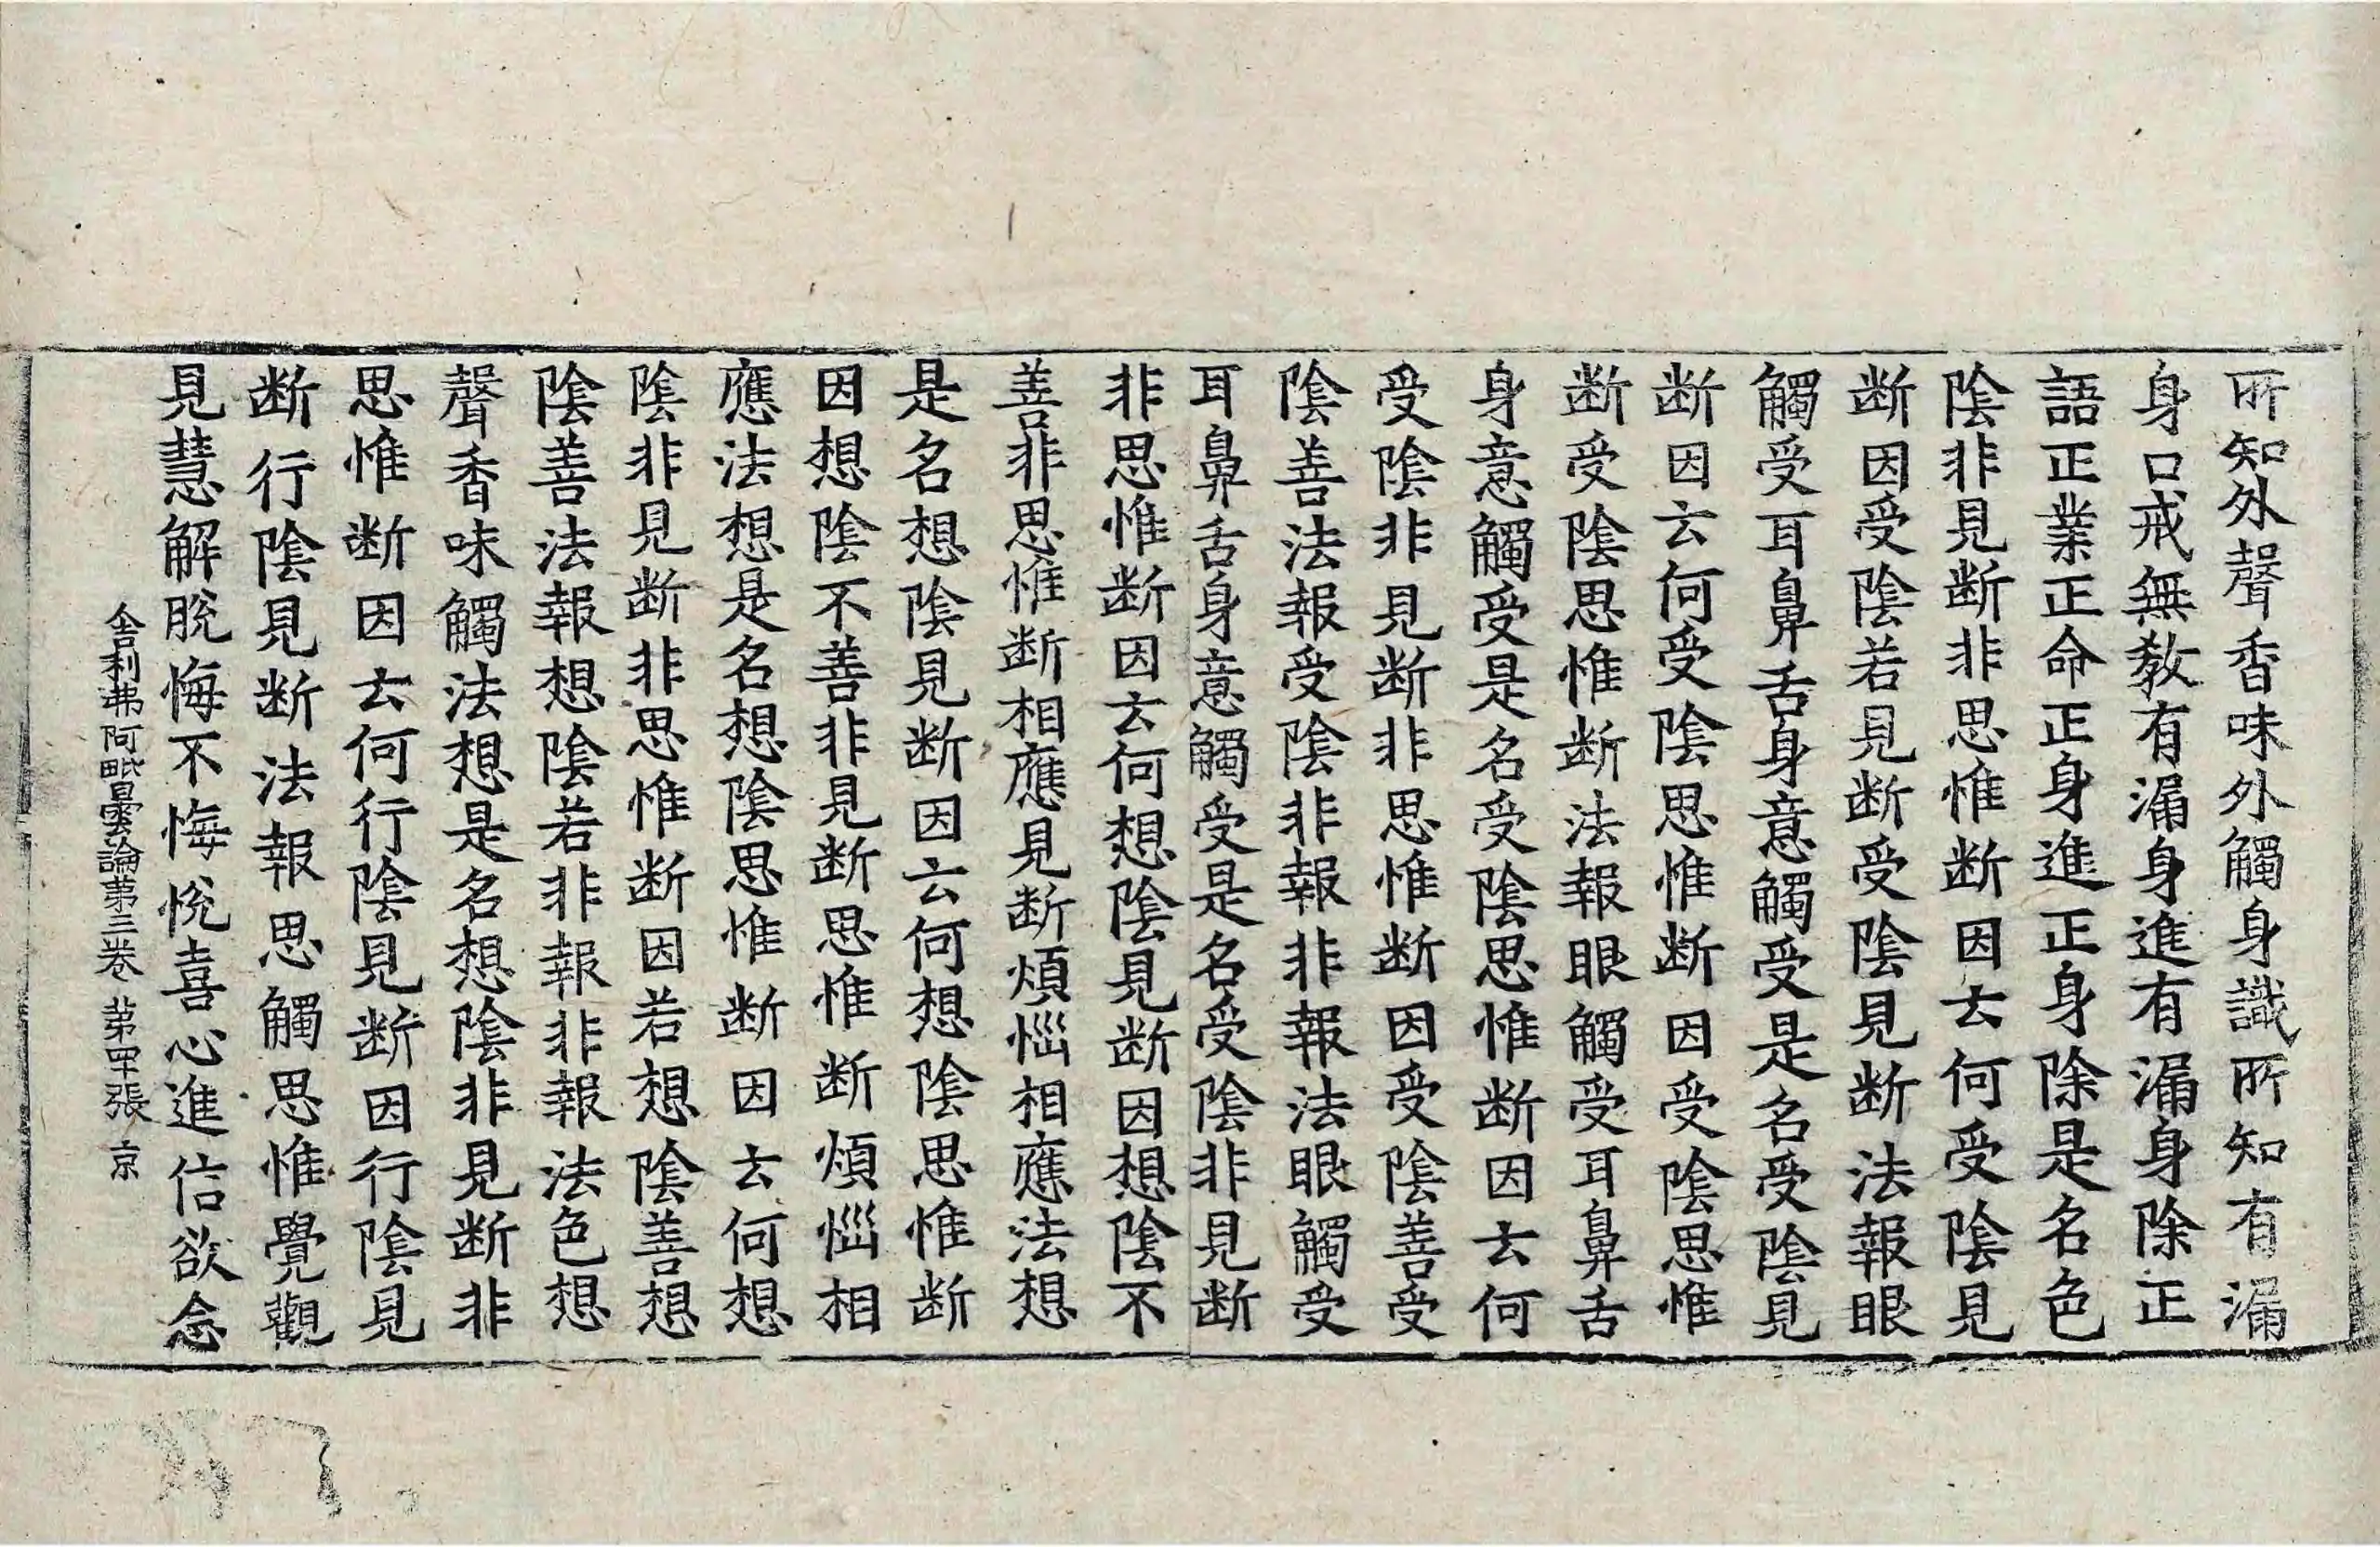 所知外聲香味外觸身識所知有漏
身口戒無教有漏身進有漏身除正
語正業正命正身進正身除是名色
陰非見断非思惟断因云何受陰見
断因受陰若見断受陰見断法報眼
觸受耳鼻舌身意觸受是名受陰見
断因云何受陰思惟断因受陰思惟
断受陰思惟断法報眼觸受耳鼻舌
身意觸受是名受陰思惟断因云何
受陰非見断非思惟断因受陰善受
陰善法報受陰非報非報法眼觸受
耳鼻舌身意觸受是名受陰非見断
非思惟断因云何想陰見断因想陰不
善非思惟断相應見断煩惱相應法想
是名想陰見断因云何想陰思惟断
因想陰不善非見断思惟断煩惱相
應法想是名想陰思惟断因云何想
陰非見断非思惟断因若想陰善想
陰善法報想陰若非報非報法色想
聲香味觸法想是名想陰非見断非
思惟断因云何行陰見断因行陰見
断行陰見断法報思觸思惟覺觀
見慧解脫悔不悔悅喜心進信欲念
舍利弗阿毗曇論第三卷 第罕張 京